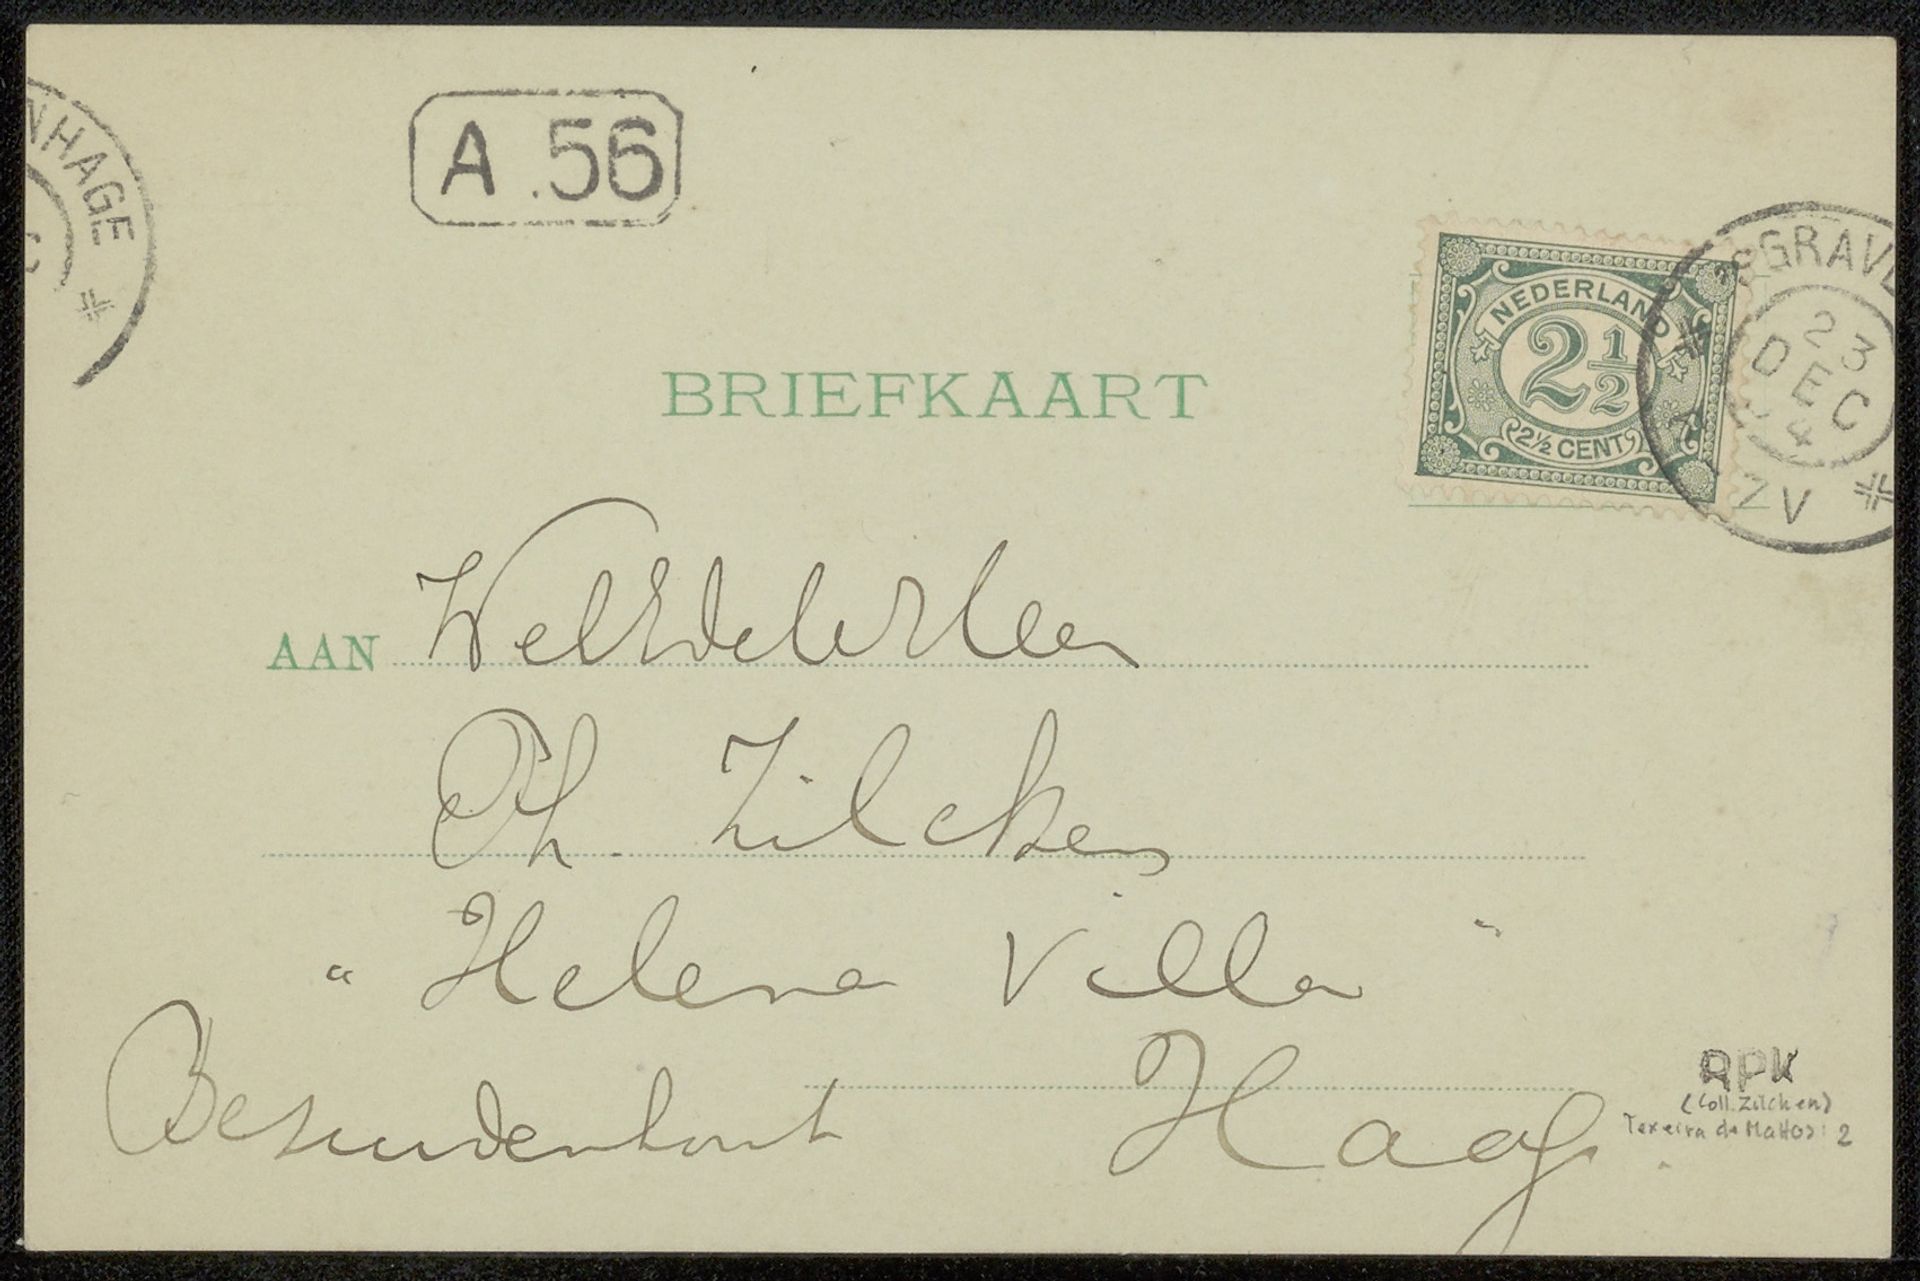 NHAGE
A.56
'SGRAVE
23
DEC
4
7V
NEDERLAND
2½
2½ CENT
BRIEFKAART
AAN WelEdelen Heer
Ph. Zilcken
"Helena Villa"
Bezuidenhout Haag.
RPK
(Coll. Zilcken)
Texeira de Mattos: 2